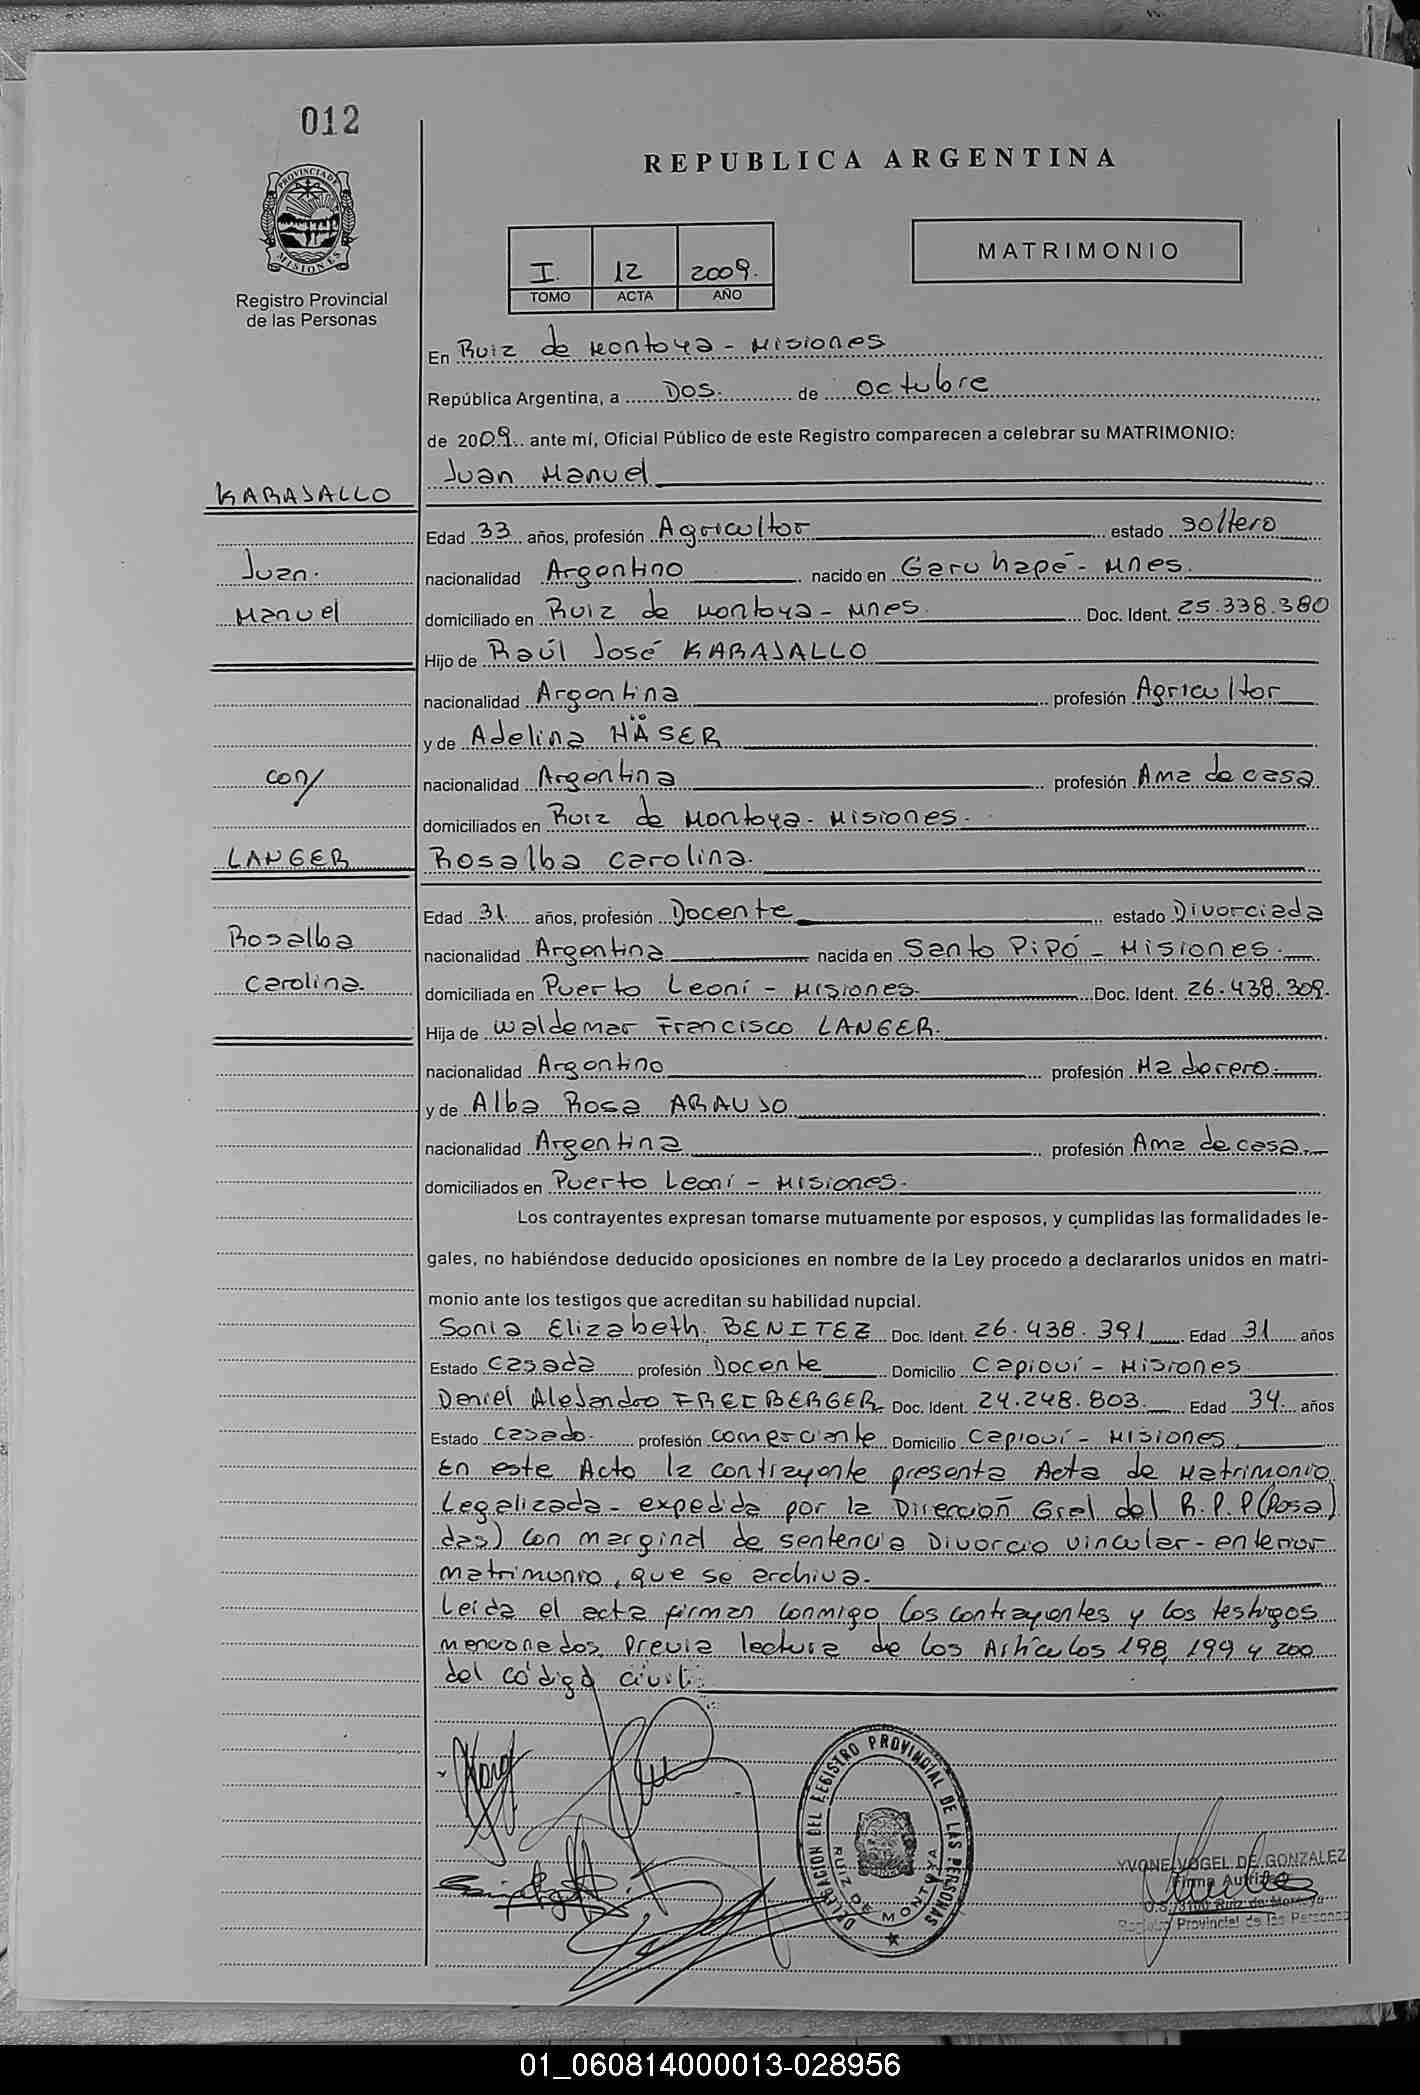 012
REPUBLICA ARGENTINA
PROVINCIA DE
MISIONES
Registro Provincial
de las Personas
I. 12 2009.
TOMO ACTA AÑO
MATRIMONIO
En Ruiz de Montoya - Misiones
República Argentina, a Dos. de octubre
de 2009 ante mí, Oficial Público de este Registro comparecen a celebrar su MATRIMONIO:
KARAJALLO
Juan Manuel
Edad 33 años, profesión Agricultor estado soltero
Juan.
nacionalidad Argentino nacido en Garuhapé - Mnes.
Manuel
domiciliado en Ruiz de Montoya - Mnes. Doc. Ident. 25.338.380
Hijo de Raúl José KARAJALLO
nacionalidad Argentina profesión Agricultor
y de Adelina HÄSER
con/
nacionalidad Argentina profesión Ama de casa
domiciliados en Ruiz de Montoya - Misiones.
LANGER
Rosalba Carolina.
Edad 31 años, profesión Docente estado Divorciada
Rosalba
nacionalidad Argentina nacida en Santo Pipó - Misiones.
Carolina.
domiciliada en Puerto Leoní - Misiones. Doc. Ident. 26.438.309.
Hija de Waldemar Francisco LANGER.
nacionalidad Argentino profesión Maderero.
y de Alba Rosa ARAUJO
nacionalidad Argentina profesión Ama de casa.
domiciliados en Puerto Leoní - Misiones.
Los contrayentes expresan tomarse mutuamente por esposos, y cumplidas las formalidades le-
gales, no habiéndose deducido oposiciones en nombre de la Ley procedo a declararlos unidos en matri-
monio ante los testigos que acreditan su habilidad nupcial.
Sonia Elizabeth BENITEZ Doc. Ident. 26.438.391 Edad 31 años
Estado Casada profesión Docente Domicilio Capioví - Misiones
Daniel Alejandro FREIBERGER Doc. Ident. 24.248.803. Edad 34 años
Estado Casado. profesión comerciante Domicilio Capioví - Misiones
En este Acto la contrayente presenta Acta de Matrimonio
Legalizada - expedida por la Dirección Gral del R.P.P (Posa
das) con marginal de sentencia Divorcio vincular - anterior
matrimonio, que se archiva.
Leída el acta firman conmigo los contrayentes y los testigos
mencionados, previa lectura de los Artículos 198, 199 y 200
del código civil.
DELEGACION DEL REGISTRO PROVINCIAL DE LAS PERSONAS
RUIZ DE MONTOYA
YVONE VOGEL DE GONZALEZ
Firma Autriz
Ruiz de Montoya
Registro Provincial de las Personas
01_060814000013-028956